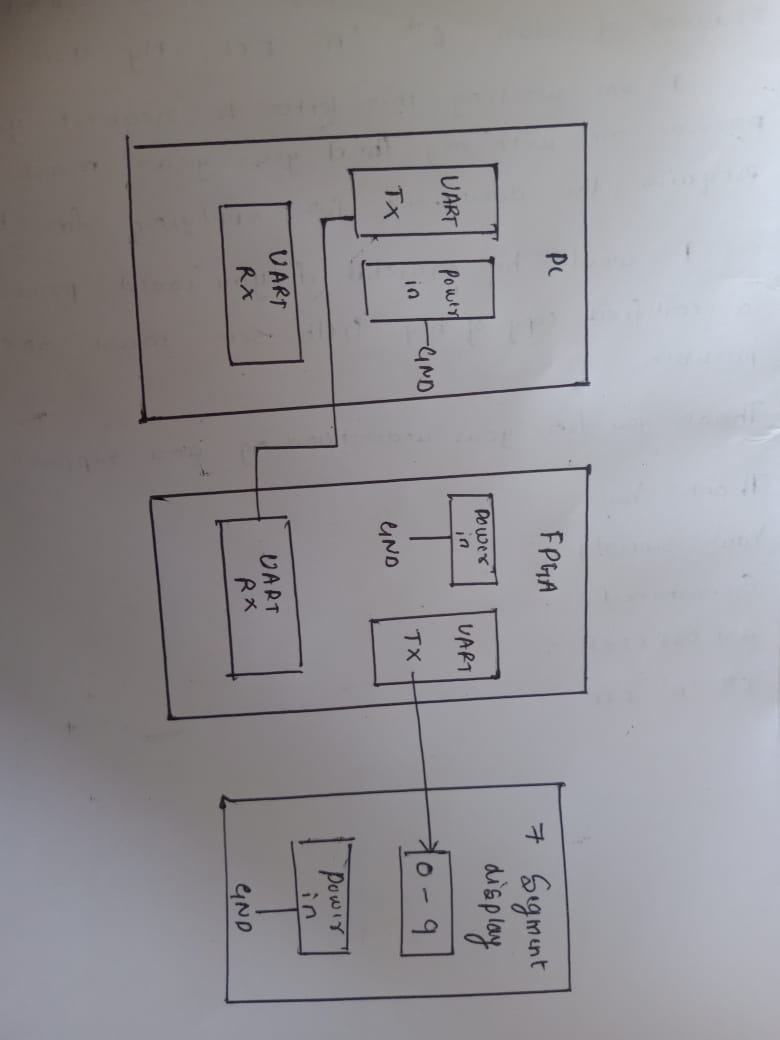 PC
UART
TX
power
in
GND
UART
RX
FPGA
power
in
GND
UART
TX
UART
RX
7 Segment
display
0 - 9
power
in
GND